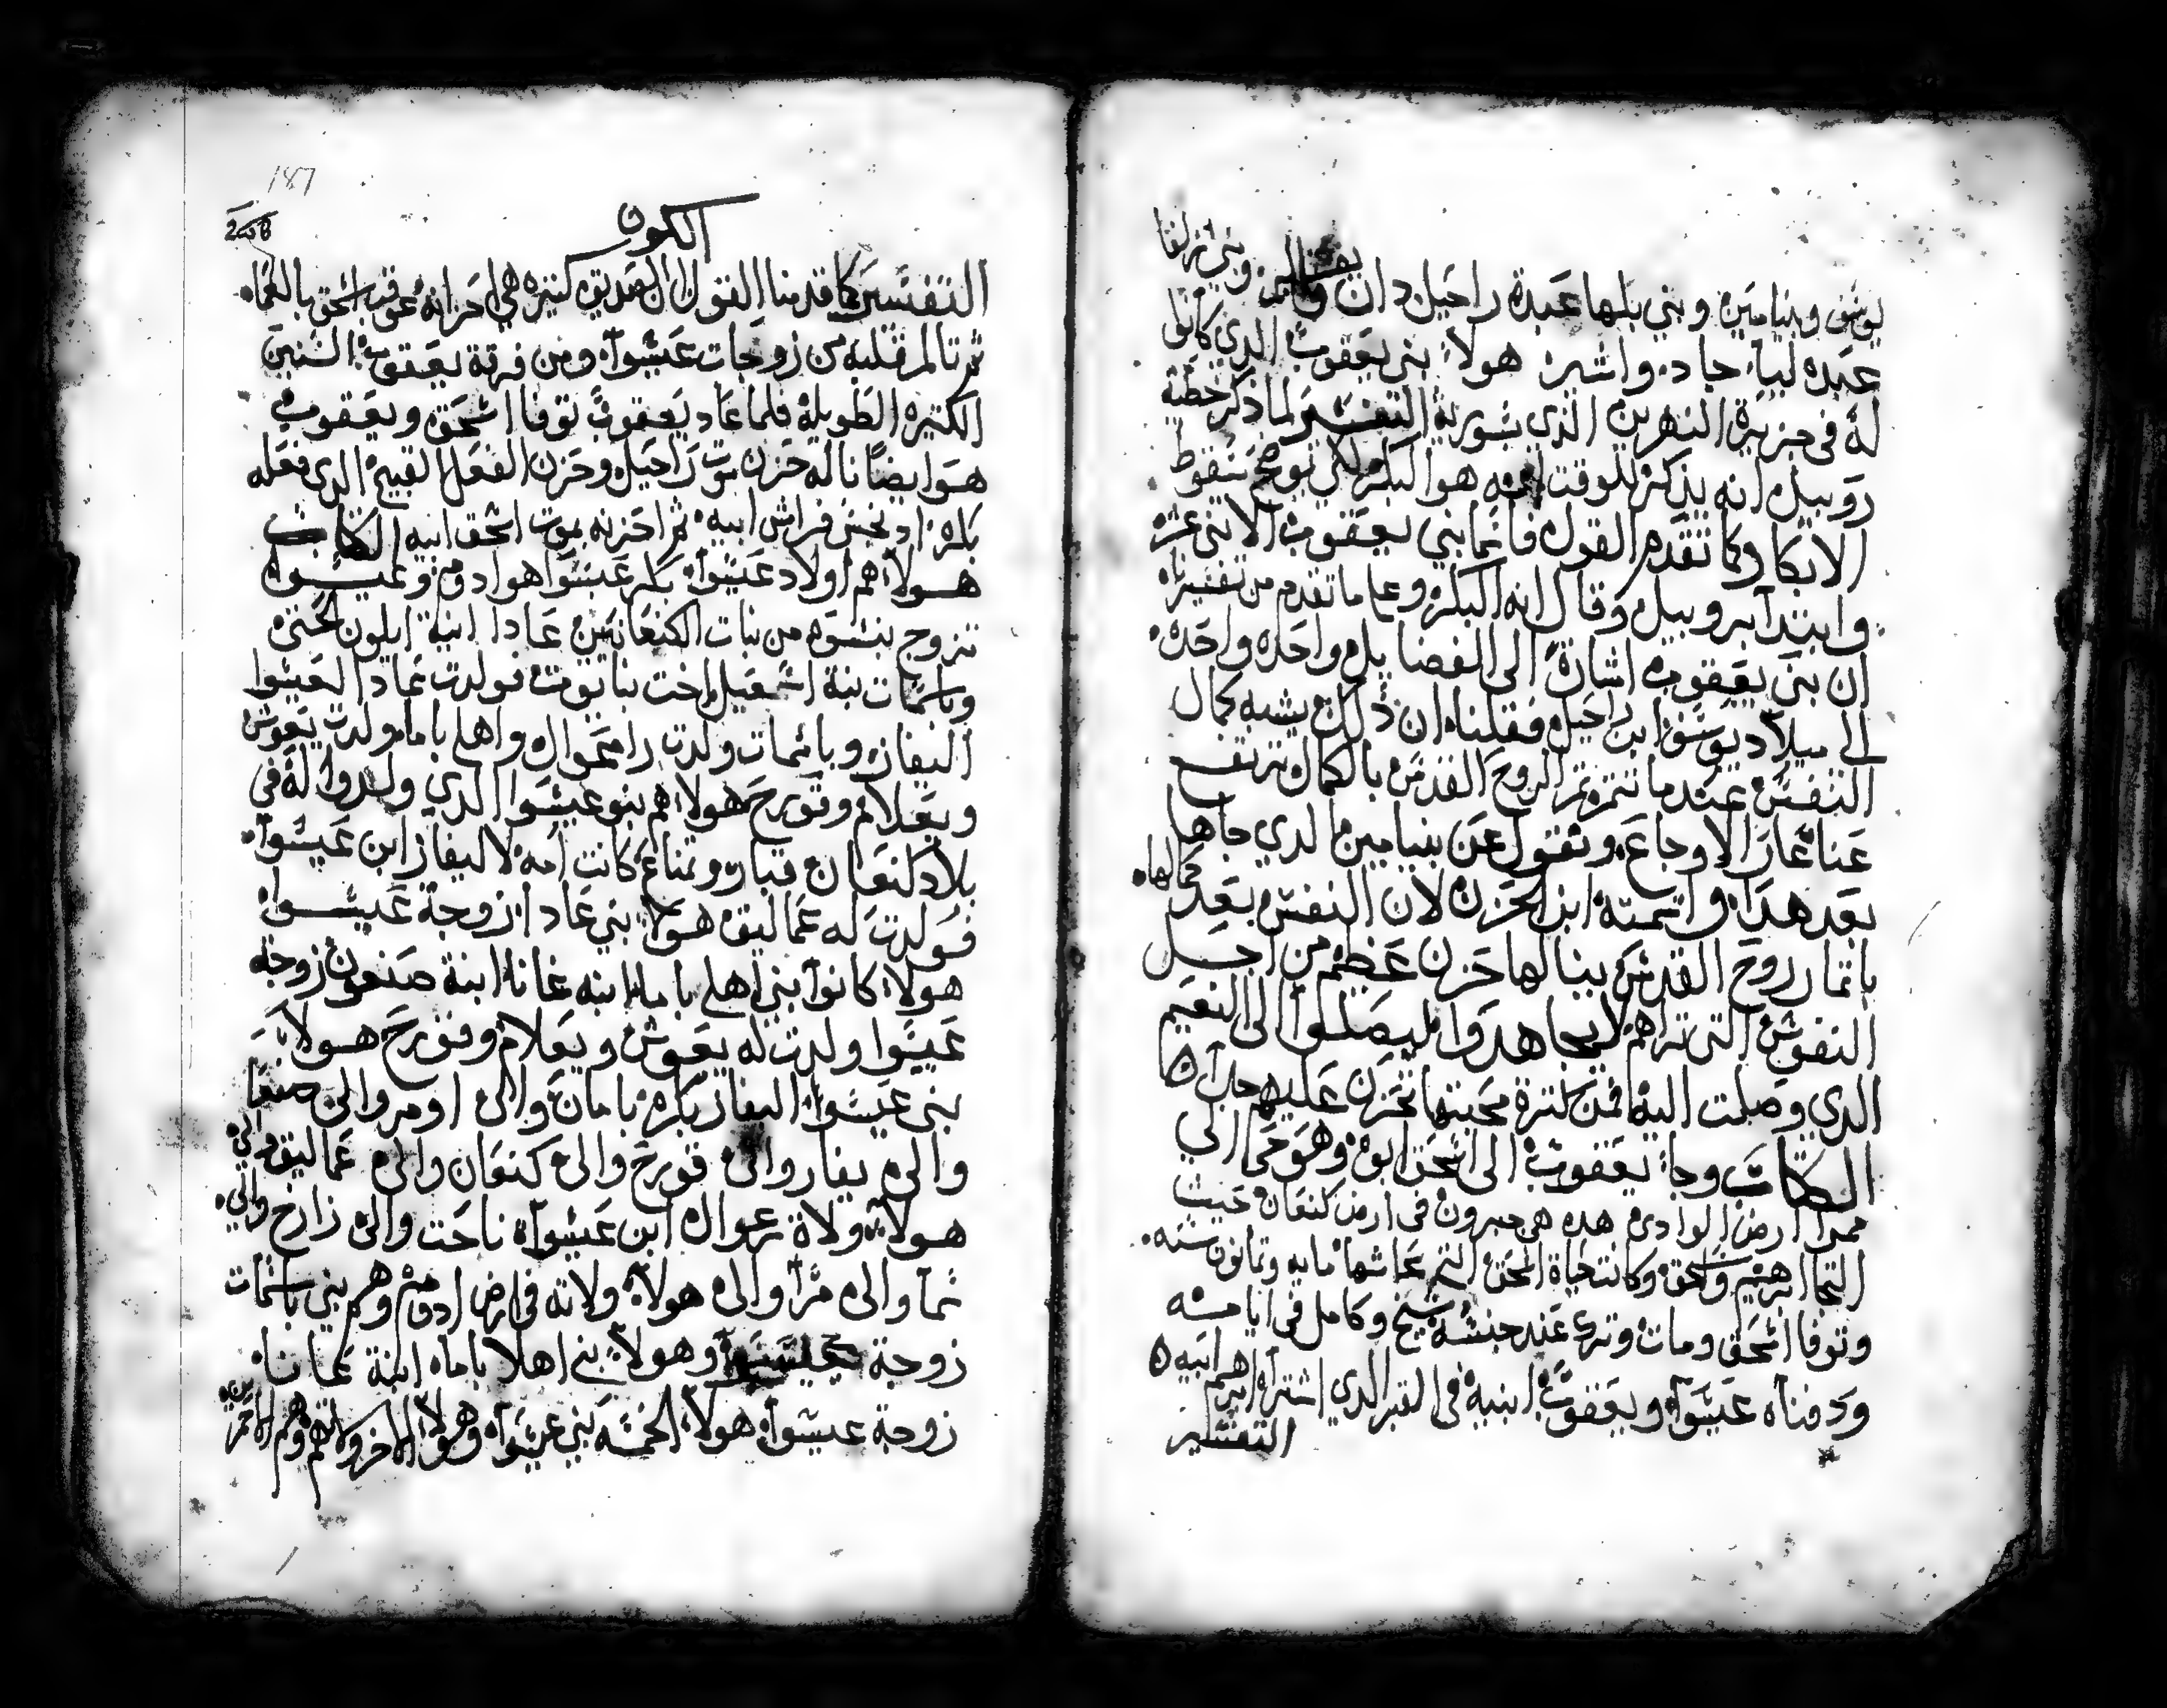 يوسف وبنيامين وبني بلها عبدة راحيل دان ونفتاليم وبني زلفا
عبده ليا جاد واشير هولا بني يعقوب الدي كانوا
له في جزيرة النهرين الذي بسورية التفسير لما ذكر خطية
روبيل انه يذكر للوقت انه هو البكر لكي نوضح سقوط
الابكار وكما تقدم القول فانما بني يعقوب الاثني عشر
وابتدا بروبيل وقال انه البكر وعلي ما تقدم من تفسيرنا
ان بني يعقوب اشارة الى الفضايل واحده واحده
الي ميلاد يوسف ابن راحيل فقلنا ان ذلك يشبه كمال
النفس عندما تتمر ثمر الروح القدس بالكمال ترتفع
عنا غمار الاوجاع ونقول عن بنيامين الدي جا هاهنا
بعد هدا واسمته ابن الحزن لان النفس بعد كمالها
باتمار روح القدس ينالها حزن عظيم من اجل
النفوس التي تراهم لا يجاهدوا ليصلوا الى النعيم
الدي وصلت اليه فمن كترة محبتها تحزن عليهم جدا
الكتاب وجا يعقوب الى اسحق ابوه وهو حي الي
ممرا ارض الوادي هده هي حبرون في ارض كنعان حيث
التجا ابرهيم واسحق وكانت حياة اسحق التي عاشها مايه وتمانون سنه
وتوفا اسحق ومات وترك عند جنسه شيخ وكامل في ايامه
ودفناه عيسوا ويعقوب ابنيه في القبر الدي اشتراه ابرهيم ابيه
التفسير
187
الكون
التفسير كما قدمنا القول ان الصديق كتيره هي احزانه عوقب اسحق بالعما
ثم تالم قلبه من زوجات عيسوا ومن فرقة يعقوب السنين
الكتيره الطويله فلما عاد يعقوب توفا اسحق ويعقوب
هو ايضا ناله حزن موت راحيل وحزن الفعل القبيح الدي فعله
بكره اد نجس فراش ابيه ثم احزنه بموت اسحق ابيه الكتاب
هولا هم اولاد عيسوا بكر عيسوا هو ادوم وعيسوا
تزوج بنسوه من بنات الكنعانيين عادا ابنة ايلون الحتي
وباسمات بنة اسمعيل اخت نبايوت فولدت عادا لعيسوا
اليفاز وباسمات ولدت راعوال واهليباما ولدت يعوش
ويعلام وقورح هولا هم بنو عيسوا الدي ولدوا له في
بلاد كنعان وتمناع كانت امه لاليفاز ابن عيسوا
فولدت له عماليق هولا بني عادا زوجة عيسوا
هولا كانوا بني اهليباما ابنه عانا ابنة صبعون زوجة
عيسوا ولدت له يعوش ويعلام وقورح هولا
بني عيسوا اليفاز بكره تامان والي اومر والي صفا
والي يفار والي قورح والي كنعان والي عماليق والي
هولا ولاة رعوال ابن عيسوا ناحت والي زارح والي
شما والي مزا والي هولا ولاته في ارض ادوم وهم بني باسمات
زوجة عيسوا وهولا بني اهلاباما ابنة عانا
زوجة عيسوا هولا الخمسه بني عيسوا وهولا